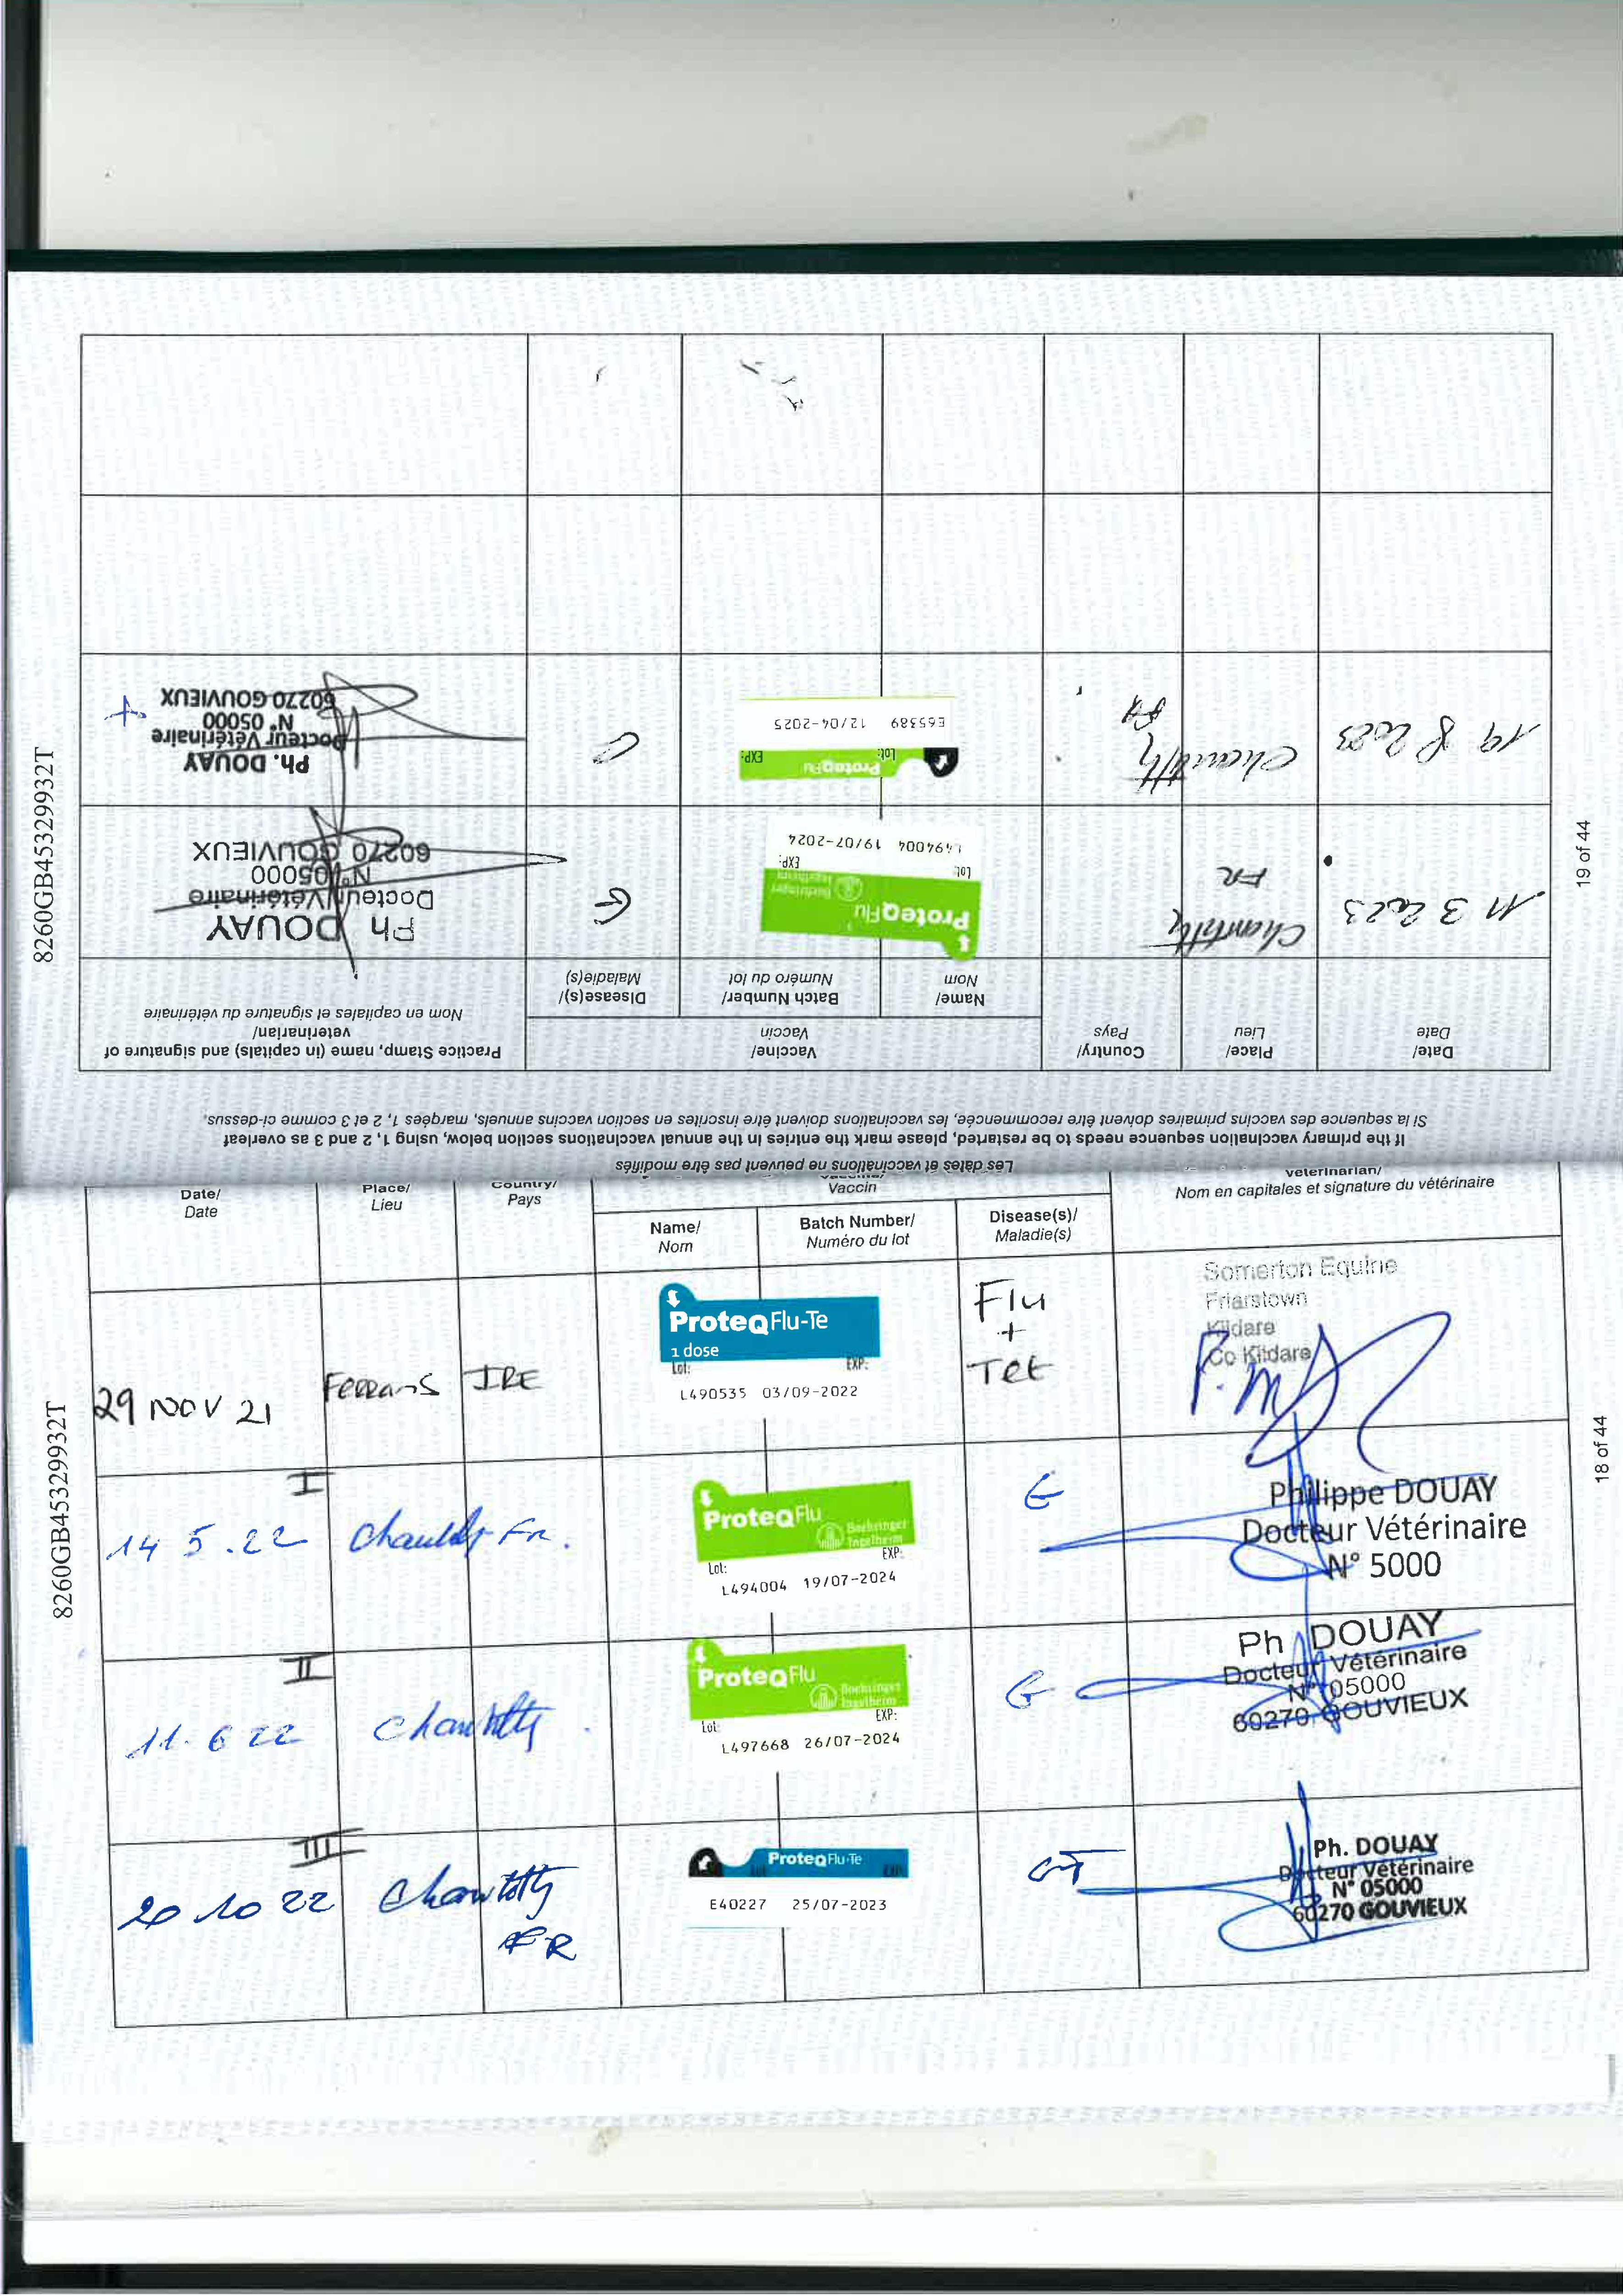 8260GB45329932T
19 of 44
Les dates et vaccinations ne peuvent pas être modifiés
If the primary vaccination sequence needs to be restarted, please mark the entries in the annual vaccinations section below, using 1, 2 and 3 as overleaf
Si la séquence des vaccins primaires doivent être recommencée, les vaccinations doivent être inscrites en section vaccins annuels, marqées 1, 2 et 3 comme ci-dessus.
Date/
Date
Place/
Lieu
Country/
Pays
Vaccine/
Vaccin
Name/
Nom
Batch Number/
Numéro du lot
Disease(s)/
Maladie(s)
Practice Stamp, name (in capitals) and signature of
veterinarian/
Nom en capitales et signature du vétérinaire
11 3 2023
Chantilly
FR
ProteqFlu
Boehringer
Ingelheim
Lot:
EXP:
L494004 19/07-2024
G
Ph DOUAY
Docteur Vétérinaire
N° 05000
60270 GOUVIEUX
19 8 2023
Chantilly
FR
ProteqFlu
Lot:
EXP:
E65389 12/04-2025
G
Ph. DOUAY
Docteur Vétérinaire
N° 05000
60270 GOUVIEUX
8260GB45329932T
18 of 44
Date/
Date
Place/
Lieu
Country/
Pays
Vaccin
Name/
Nom
Batch Number/
Numéro du lot
Disease(s)/
Maladie(s)
veterinarian/
Nom en capitales et signature du vétérinaire
29 NOV 21
Ferrans
IRE
ProteqFlu-Te
1 dose
Lot:
EXP:
L490535 03/09-2022
Flu
+
Tet
Somerton Equine
Friarstown
Kildare
Co Kildare
I
14 5.22
Chantilly
FR.
ProteqFlu
Boehringer
Ingelheim
Lot:
EXP:
L494004 19/07-2024
G
Philippe DOUAY
Docteur Vétérinaire
N° 5000
II
11.6 22
Chantilly
ProteqFlu
Boehringer
Ingelheim
Lot:
EXP:
L497668 26/07-2024
G
Ph DOUAY
Docteur Vétérinaire
N° 05000
60270 GOUVIEUX
III
20 10 22
Chantilly
FR
ProteqFlu-Te
Lot:
EXP:
E40227 25/07-2023
GT
Ph. DOUAY
Docteur Vétérinaire
N° 05000
60270 GOUVIEUX